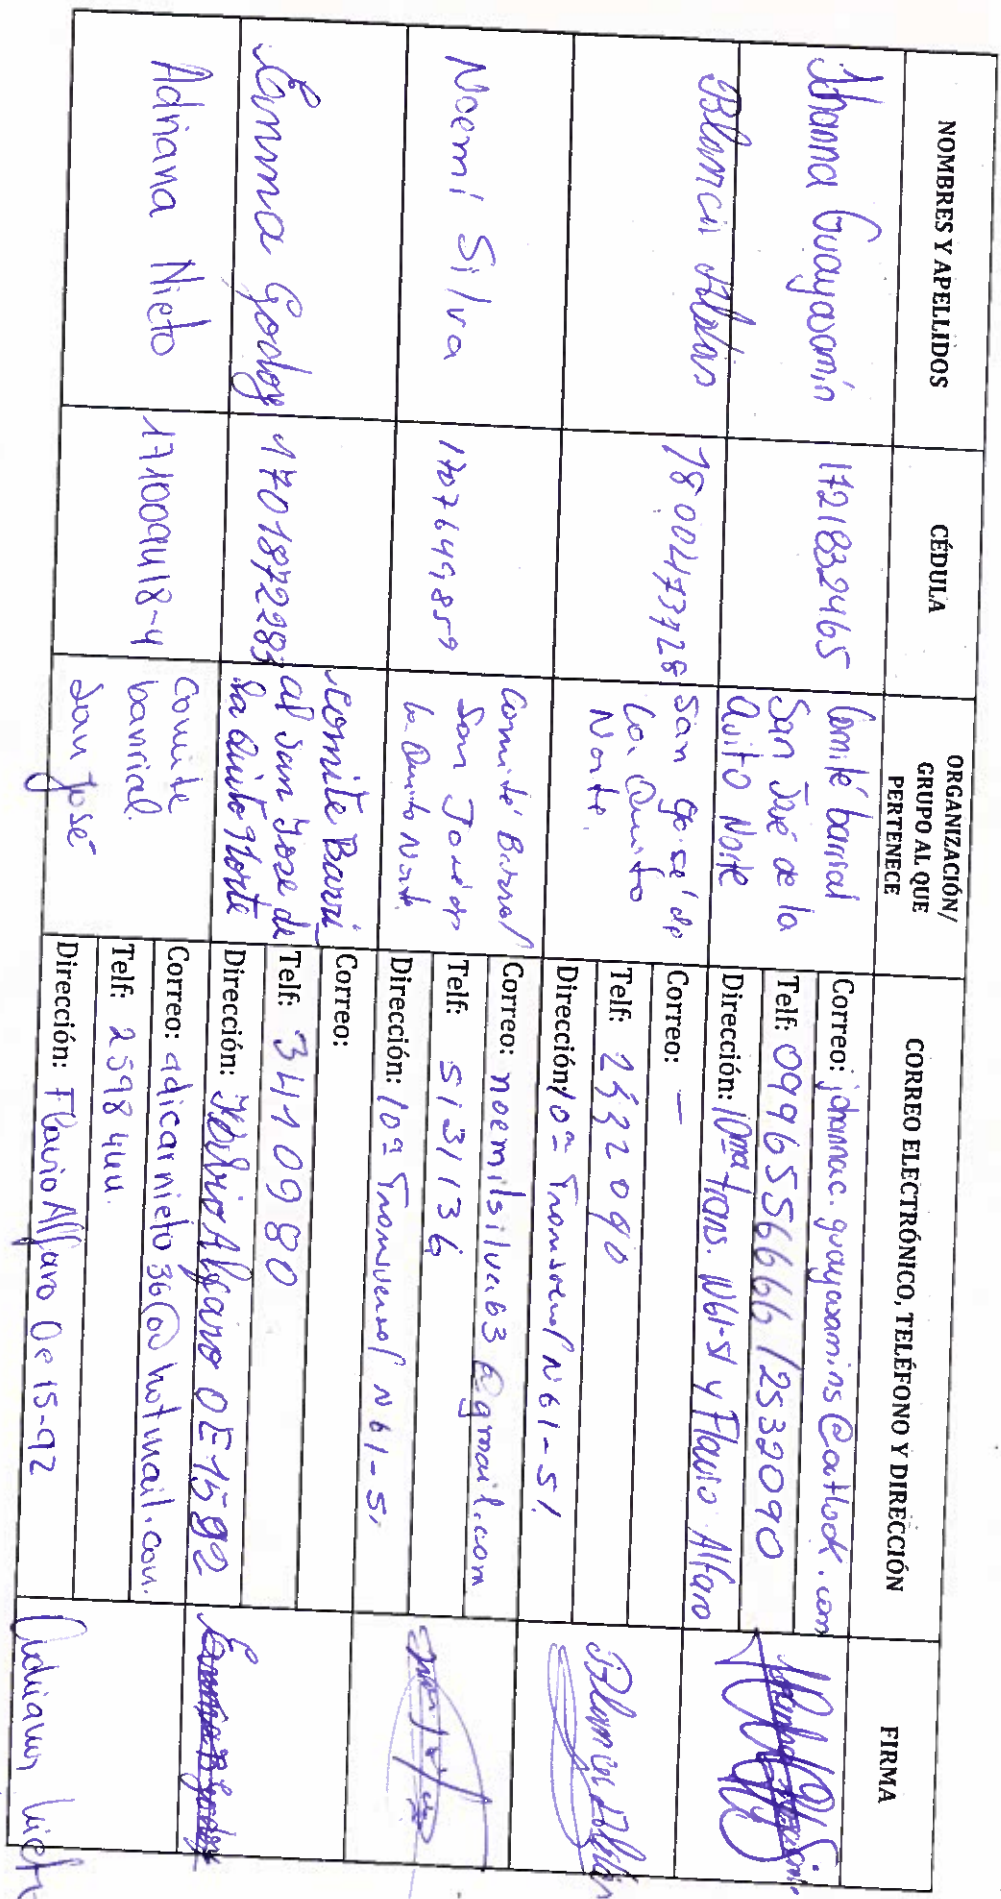 NOMBRES Y APELLIDOS
CÉDULA
ORGANIZACIÓN/
GRUPO AL QUE
PERTENECE
CORREO ELECTRÓNICO, TELÉFONO Y DIRECCIÓN
FIRMA
Jhanna Guayasamín
1721832465
Comité barrial
San José de la
Quito Norte
Correo: johannac.guayasamins@outlook.com
Telf: 0996556666 / 2532090
Dirección: 10ma trans. N61-51 y Flavio Alfaro
Blanca
San José de
La Quito
Norte.
Correo: —
Telf: 2532090
Dirección: 10ª Transversal N61-51
Noemí Silva
1707649859
Comité Barrial
San José de
la Quito Norte
Correo: noemilsilva63@gmail.com
Telf: 5131136
Dirección: 10ª Transversal N61-51
Emma Godoy
1701872283
Comité Barri
al San Jose de
la Quito Norte
Correo:
Telf: 34110980
Dirección: Flavio Alfaro OE1592
Adriana Nieto
171009418-4
Comite
barrial
San José
Correo: adicarnieto36@hotmail.com.
Telf: 2598444.
Dirección: Flavio Alfaro Oe15-92
Adriana Nieto